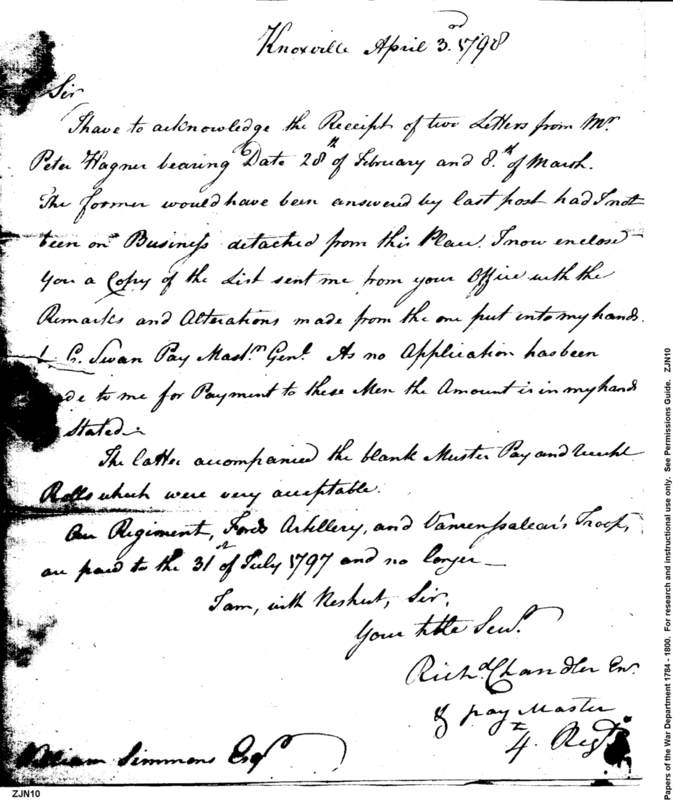 Knoxville April 3rd. 1798
Sir
I have to acknowledge the Receipt of two Letters from Mr.
Peter Hagner bearing Date 28th of February and 8th. of March.
The former would have been answered by last post had I not
been on Business detached from this Place. I now enclose
you a Copy of the List sent me from your Office with the
Remarks and Alterations made from the one put into my hands
C. Swan Pay Mastr. Genl. As no Application has been
de to me for Payment to these Men the Amount is in my hands
Stated
The latter accompanied the blank Muster Pay and Receipt
Rolls which were very acceptable.
Our Regiment, Fords Artillery, and Vanrensselear's Troop,
are paid to the 31st of July 1797 and no longer
I am, with Respect, Sir,
Your Hble Servt.
Richd. Chandler En.
& pay Master
4th Regt
William Simmons Esqr
ZJN10
Papers of the War Department 1784 - 1800. For research and instructional use only. See Permissions Guide. ZJN10